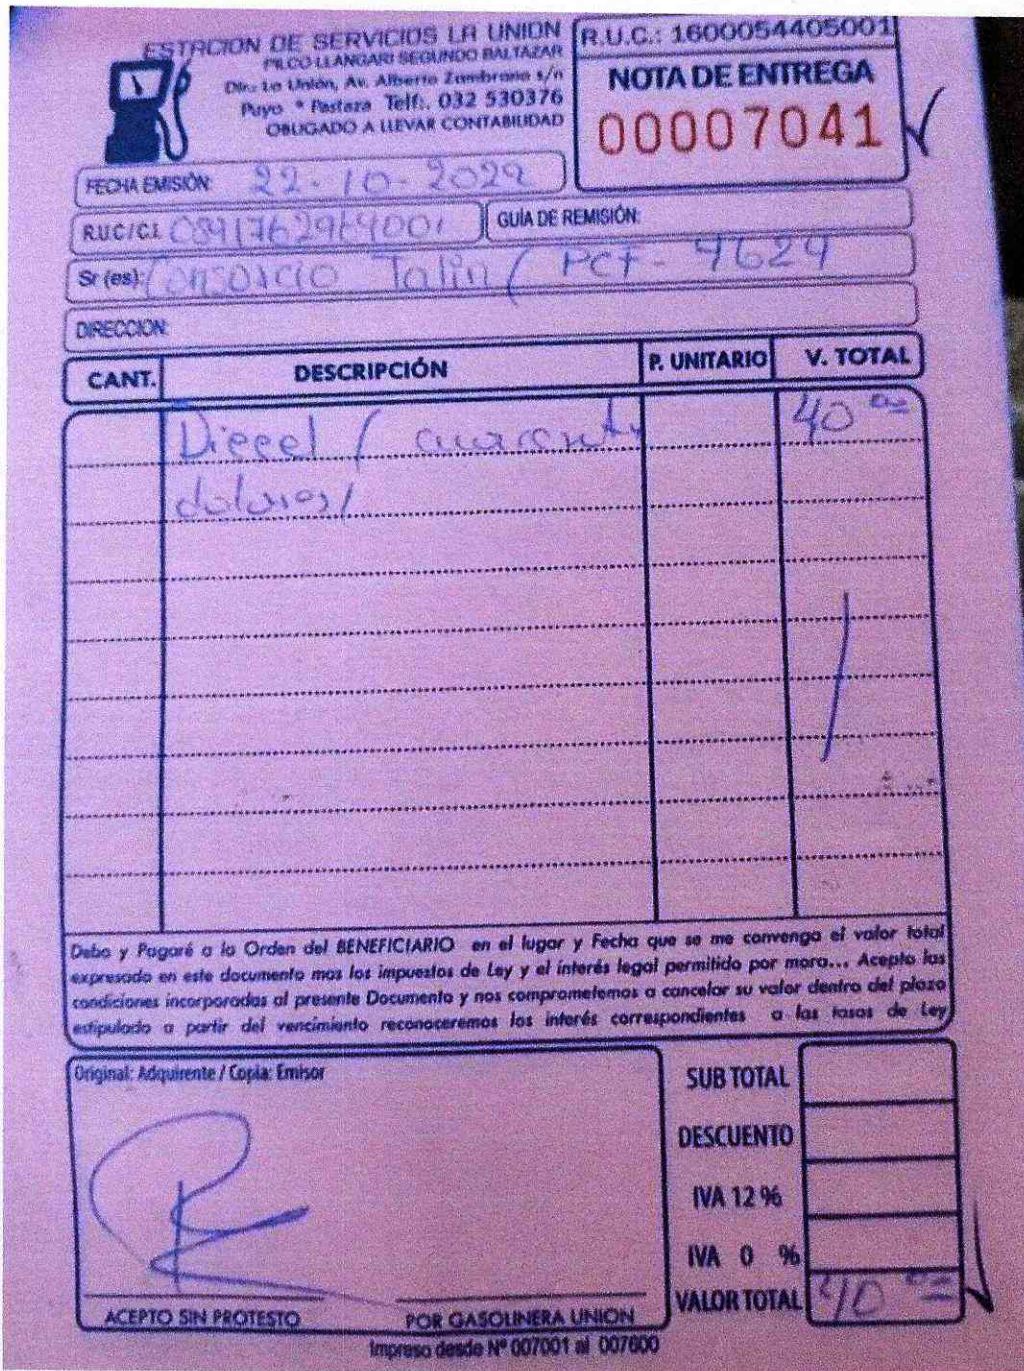 ESTACION DE SERVICIOS LA UNION
PILCO LLANGARI SEGUNDO BALTAZAR
Dir.: La Unión, Av. Alberto Zambrano s/n
Puyo * Pastaza Telf:. 032 530376
OBLIGADO A LLEVAR CONTABILIDAD
R.U.C.: 1600054405001
NOTA DE ENTREGA
00007041
FECHA EMISIÓN: 22-10-2022
R.U.C/C.I.
GUÍA DE REMISIÓN:
Sr (es): Consorcio Talin / PCF-
DIRECCION:
CANT. DESCRIPCIÓN P. UNITARIO V. TOTAL
Diesel / cuarenta 40 00
dolares/
Debo y Pagaré a la Orden del BENEFICIARIO en el lugar y Fecha que se me convenga el valor total
expresado en este documento mas los impuestos de Ley y el interés legal permitido por mora... Acepto las
condiciones incorporadas al presente Documento y nos comprometemos a cancelar su valor dentro del plazo
estipulado a partir del vencimiento reconoceremos los interés correspondientes a las tasas de Ley
Original: Adquirente / Copia: Emisor
SUB TOTAL
DESCUENTO
IVA 12 %
IVA 0 %
VALOR TOTAL 40 00
ACEPTO SIN PROTESTO POR GASOLINERA UNION
Impreso desde Nº 007001 al 007600